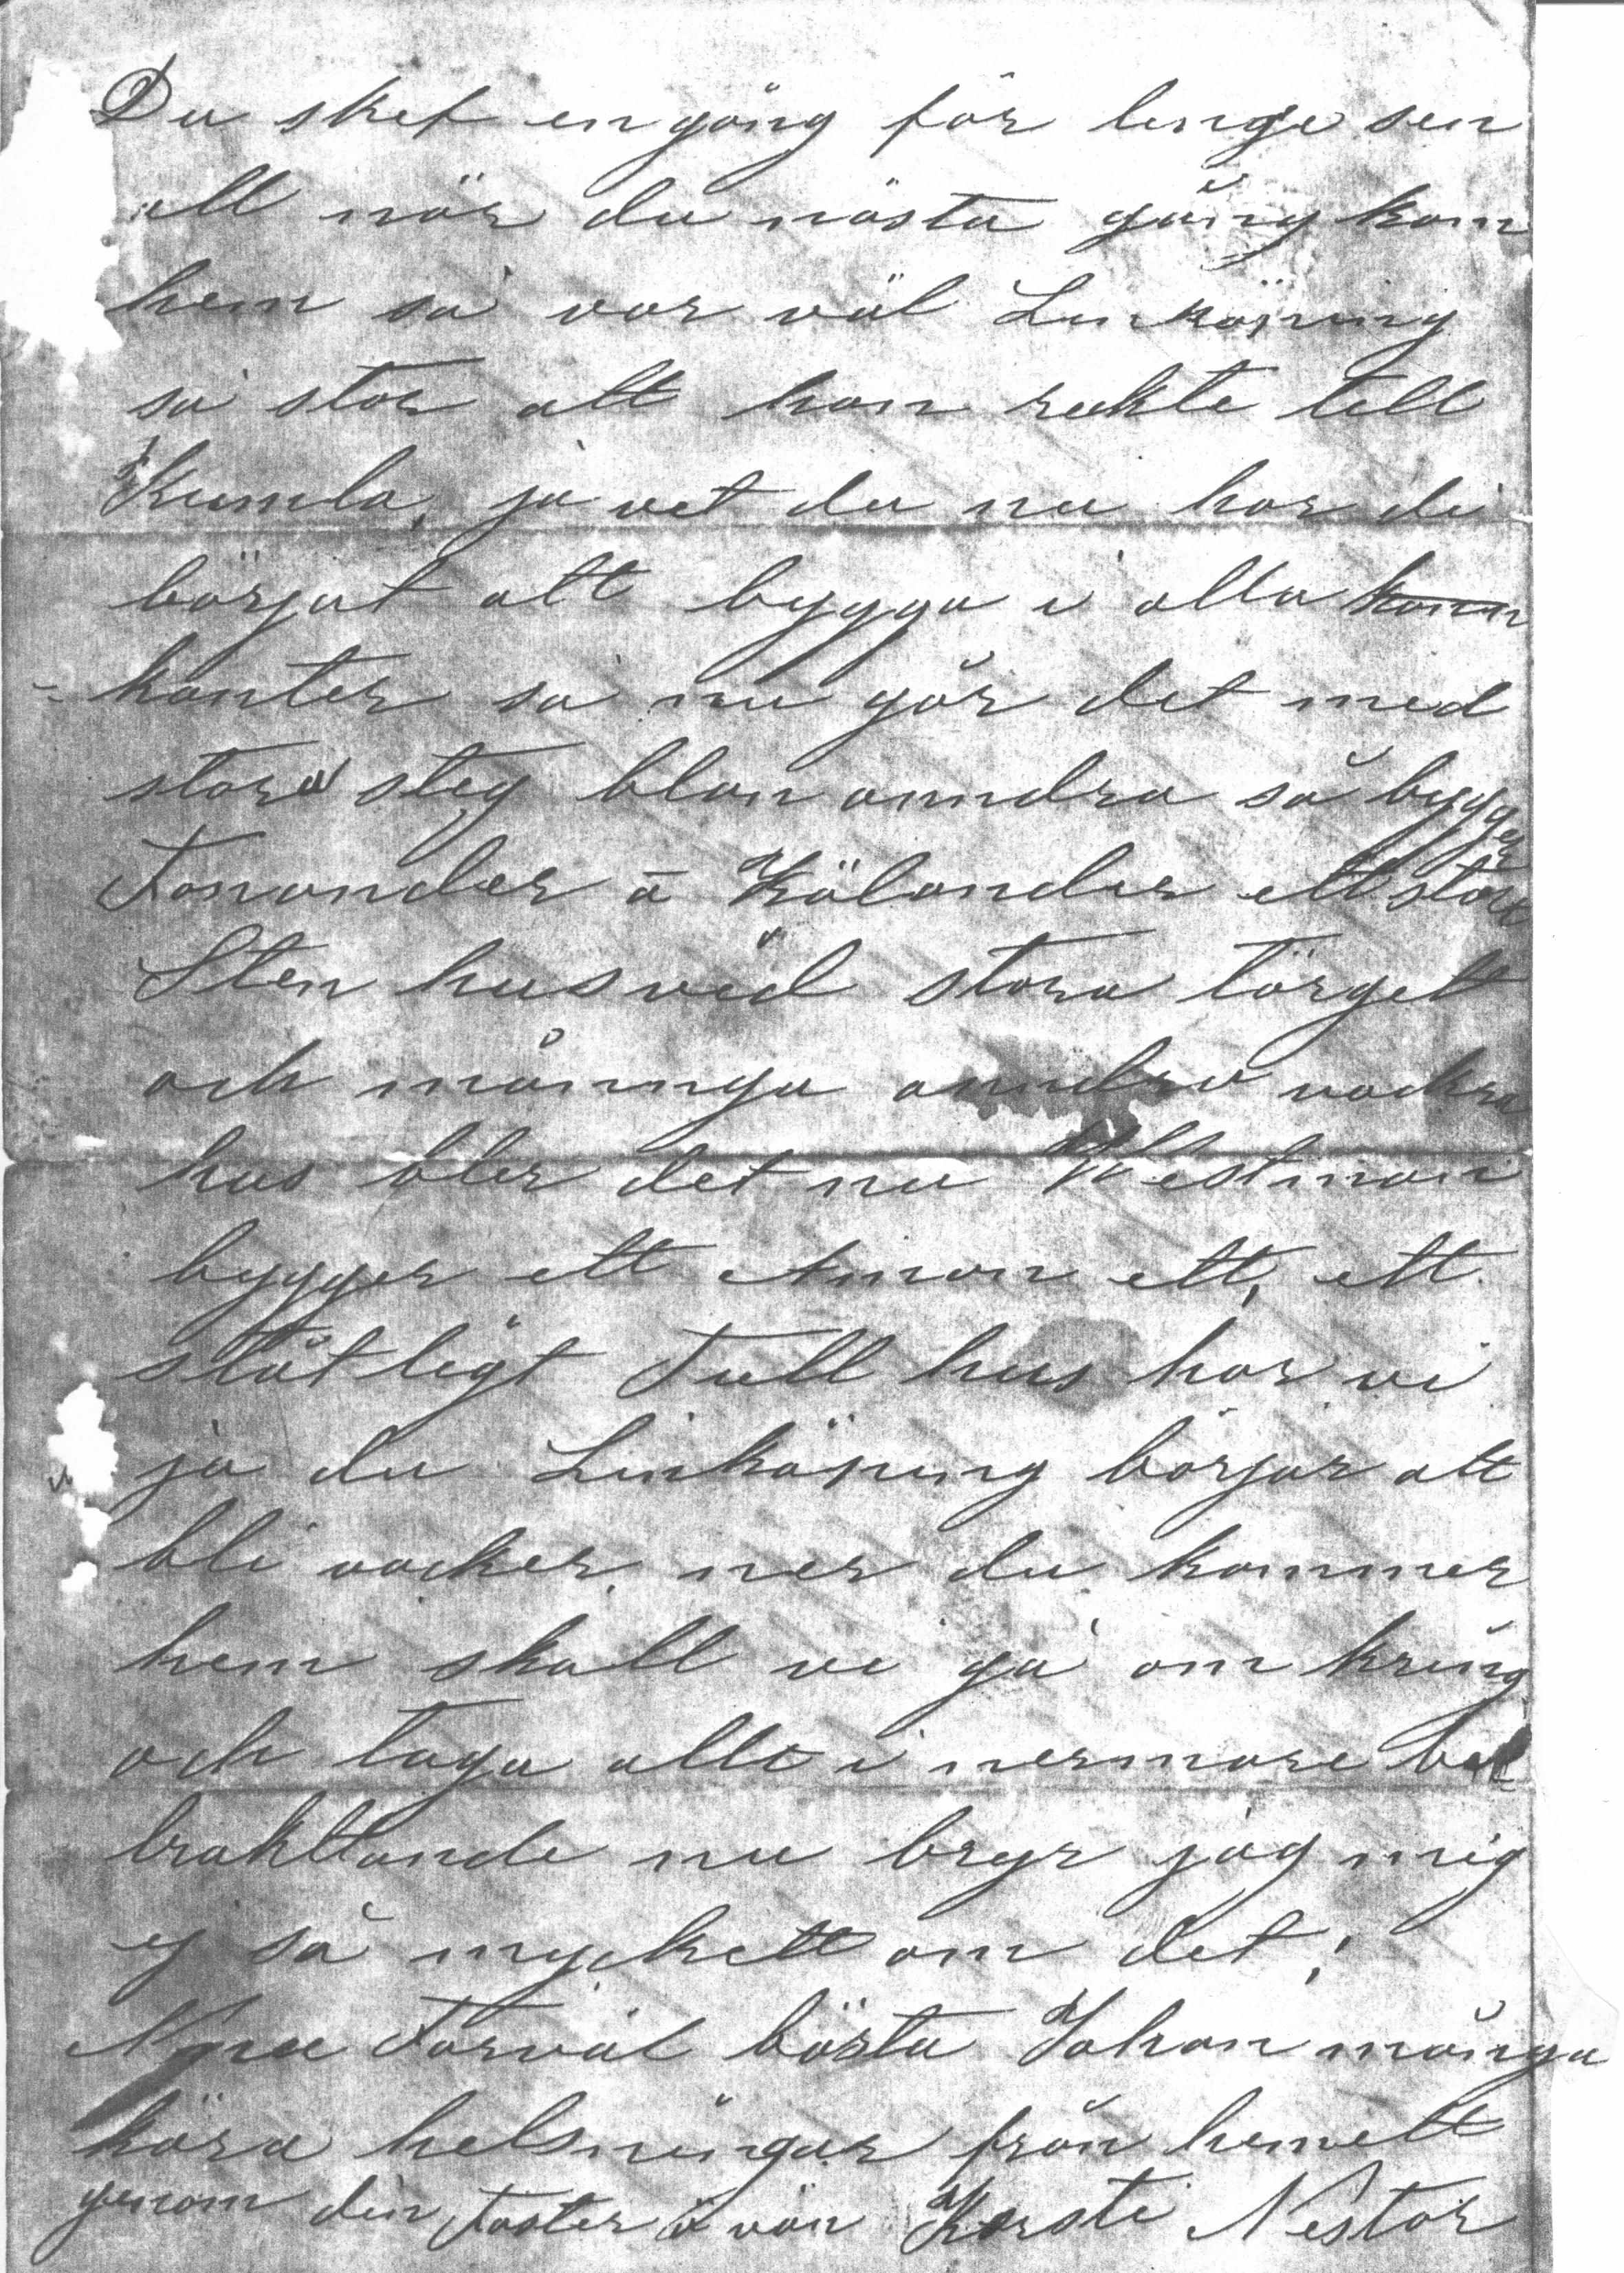 Du skref en gång för lenge sen
att när du nästa gång kom
hem så var väl Linköping
så stor att han rekte till
Kumla, ja vet du nu har di
börjat att bygga i alla
kanter så nu går det med
stora steg blan anndra så bygger
Tonander å Kölander ett stort
Sten hus vid stora torget
och månnga anndra vackra
hus bler det nu Westman
bygger ett Aman ett, ett
ståtligt Tull hus har vi
ja du Linköping börjar att
bli vacker ner du kommer
hem skall vi gå om kring
och taga allt i nermare be
traktande nu bryr jag mig
ej så myckett om det,
Nu Farväl bästa Johan många
kära helsningar från hemett
genom din Faster å vän Kersti Nestor